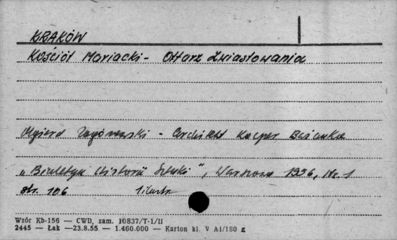 KRAKÓW
Kościół Mariacki - Ołtarz Zwiastowania
Olgierd Zagórowski - Architekt Kacper Bażanka
„Biuletyn Historii Sztuki", Warszawa 1956, Nr. 1
str. 106 1 ilustr.
Wzór Kb-156 — CWD, zam. 10837/T-1/II
2445 — Łak —23.8.55 — 1.460.000 — Karton kl. V A1/180 g